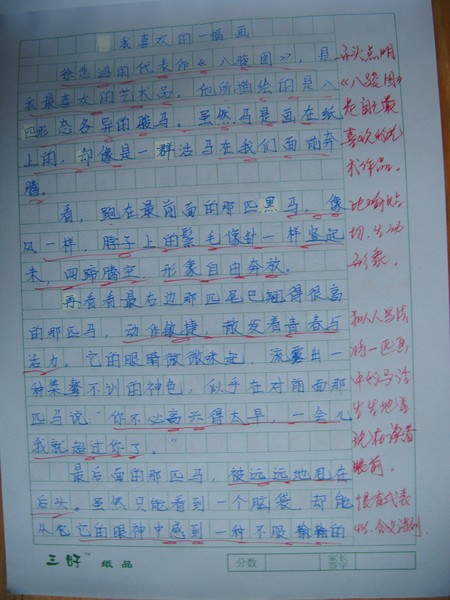 我喜欢的一幅画
徐悲鸿的代表作《八骏图》，是
我最喜欢的艺术品，他所描绘的是八
匹形态各异的骏马。虽然马是画在纸
上的，却像是一群活马在我们面前奔
腾。
看，跑在最前面的那匹黑马，像
风一样，脖子上的鬃毛像针一样竖起
来，四蹄腾空，形象自由奔放。
再看看最右边那匹尾巴翘得很高
的那匹马，动作敏捷，散发着青春与
活力。它的眼睛微微未起，流露出一
种桀骜不训的神色，似乎在对前面那
匹马说“你不必高兴得太早，一会儿
我就超过你了。”
最后面的那匹马，被远远地甩在
后头。虽然只能看到一个脑袋，却能
从它的眼神中感到一种不服输的
开头点明
《八骏图》
是自己最
喜欢的艺
术作品。
比喻贴
切，生动
形象。
拟人写法
将一匹画
中的马活
生生地呈
现在读者
眼前。
很有代表
性，
三好 纸品
分数
家长
签字